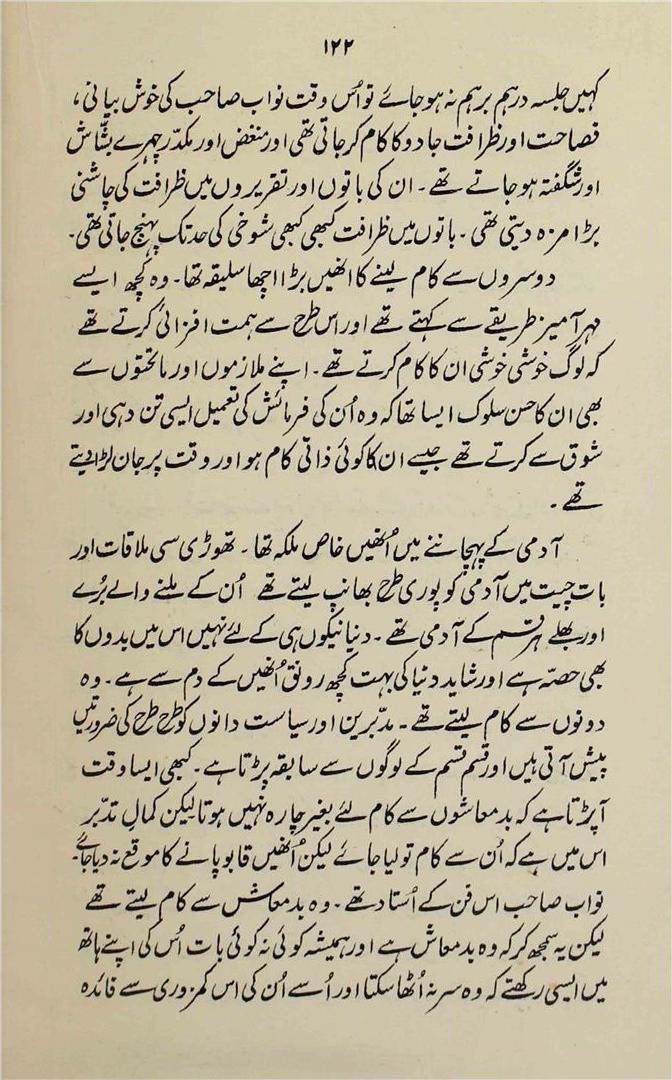 ۱۲۲
کہیں جلسہ درہم برہم نہ ہو جائے تو اُس وقت نواب صاحب کی خوش بیانی،
فصاحت اور ظرافت جادو کا کام کر جاتی تھی اور منغض اور مکدّر چہرے بشّاش
اور شگفتہ ہو جاتے تھے۔ ان کی باتوں اور تقریروں میں ظرافت کی چاشنی
بڑا مزہ دیتی تھی۔ باتوں میں ظرافت کبھی کبھی شوخی کی حد تک پہنچ جاتی تھی۔
دوسروں سے کام لینے کا انھیں بڑا اچھا سلیقہ تھا۔ وہ کچھ ایسے
مہر آمیز طریقے سے کہتے تھے اور اس طرح سے ہمت افزائی کرتے تھے
کہ لوگ خوشی خوشی ان کا کام کرتے تھے۔ اپنے ملازموں اور ماتحتوں سے
بھی ان کا حسن سلوک ایسا تھا کہ وہ اُن کی فرمائش کی تعمیل ایسی تن دہی اور
شوق سے کرتے تھے جیسے ان کا کوئی ذاتی کام ہو اور وقت پر جان لڑا دیتے
تھے۔
آدمی کے پہچاننے میں اُنھیں خاص ملکہ تھا۔ تھوڑی سی ملاقات اور
بات چیت میں آدمی کو پوری طرح بھانپ لیتے تھے اُن کے ملنے والے بُرے
اور بھلے ہر قسم کے آدمی تھے۔ دنیا نیکوں ہی کے لئے نہیں اس میں بدوں کا
بھی حصّہ ہے اور شاید دنیا کی بہت کچھ رونق اُنھیں کے دم سے ہے۔ وہ
دونوں سے کام لیتے تھے۔ مدبّرین اور سیاست دانوں کو طرح طرح کی ضرورتیں
پیش آتی ہیں اور قسم قسم کے لوگوں سے سابقہ پڑتا ہے۔ کبھی ایسا وقت
آپڑتا ہے کہ بدمعاشوں سے کام لئے بغیر چارہ نہیں ہوتا لیکن کمالِ تدبّر
اس میں ہے کہ اُن سے کام تو لیا جائے لیکن اُنھیں قابو پانے کا موقع نہ دیا جائے۔
نواب صاحب اس فن کے اُستاد تھے۔ وہ بدمعاش سے کام لیتے تھے
لیکن یہ سمجھ کر کہ وہ بدمعاش ہے اور ہمیشہ کوئی نہ کوئی بات اُس کی اپنے ہاتھ
میں ایسی رکھتے کہ وہ سر نہ اُٹھا سکتا اور اُسے اُن کی اس کمزوری سے فائدہ